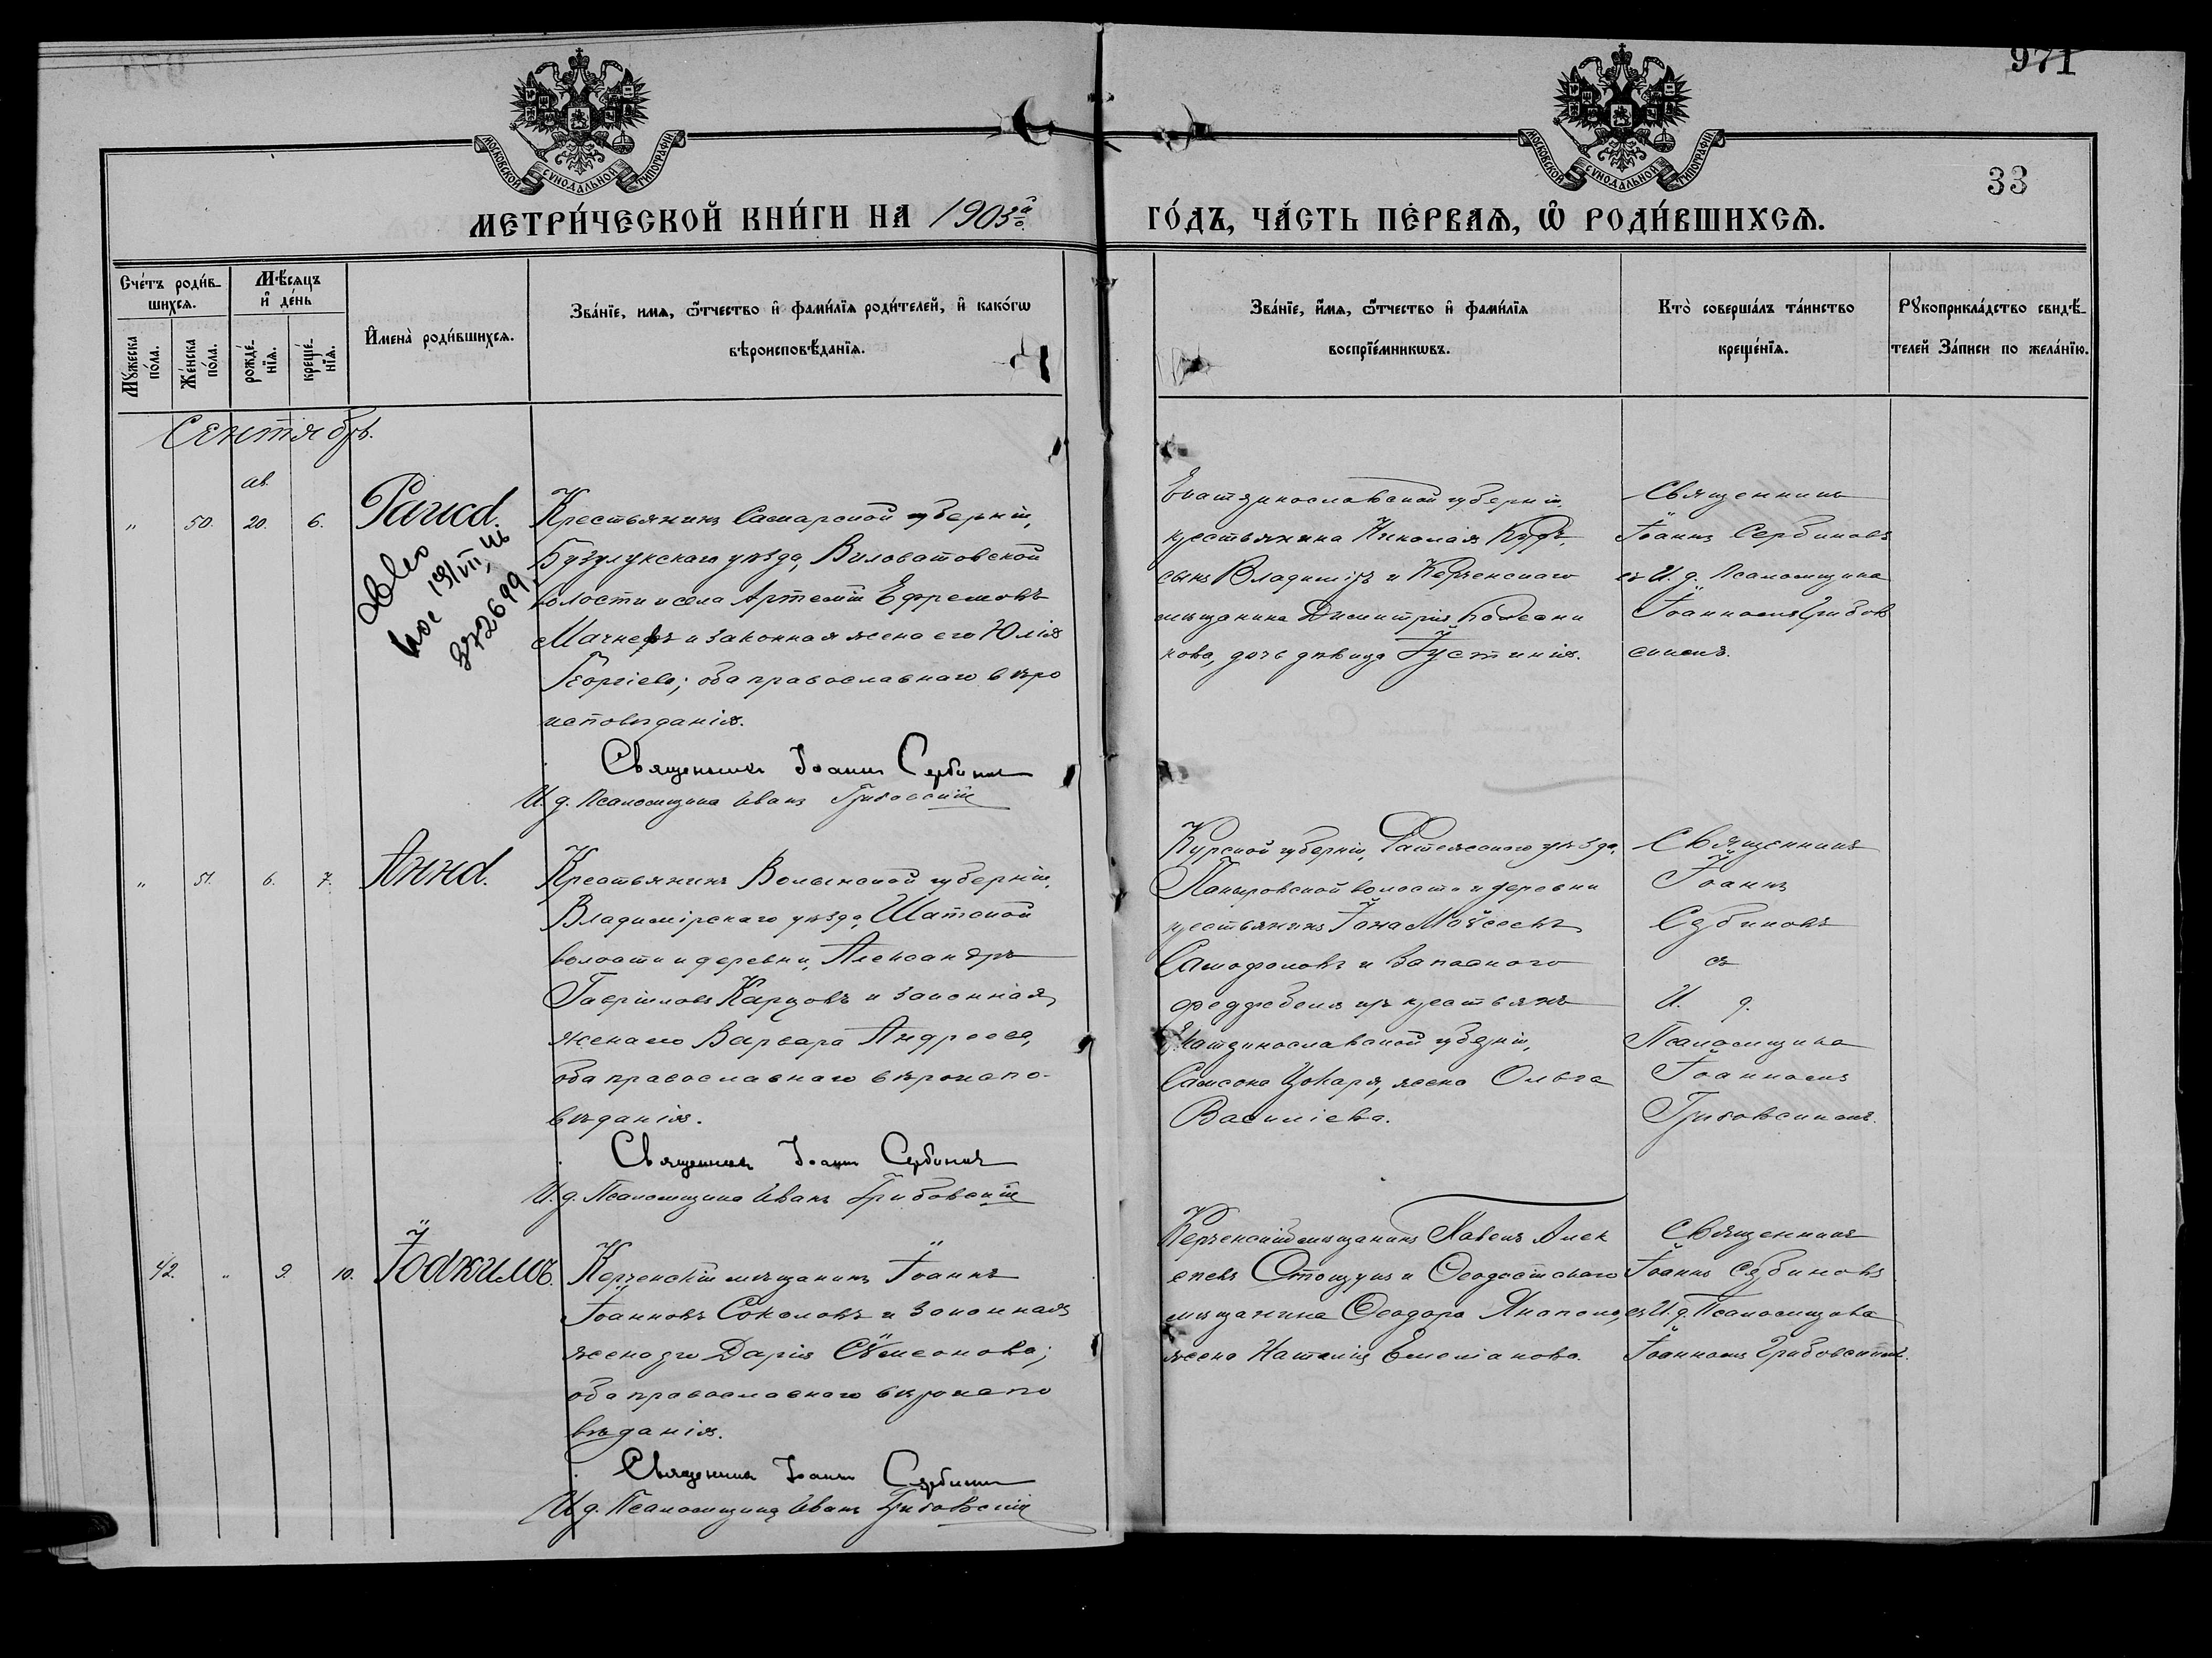 971
33
МОСКОВСКОЙ СѴНОДАЛЬНОЙ ТИПОГРАФІИ
МОСКОВСКОЙ СѴНОДАЛЬНОЙ ТИПОГРАФІИ
МЕТРИ́ЧЕСКОЙ КНИ́ГИ НА 1903й
ГО́ДЪ, ЧА́СТЬ ПЕ́РВАѦ, Ѿ РОДИ́ВШИХСѦ.
Сче́тъ роди́в-
шихсѧ.
Мѣ́сѧцъ
и҆ де́нь
Мꙋ́жеска
по́ла.
Же́нска
по́ла.
рожде́-
нїѧ.
креще́-
нїѧ.
И҆мена̀ роди́вшихсѧ.
Зва́нїе, имѧ, ѻ҆́тчество и҆ фами́лїѧ роди́телей, и҆ како́гѡ
вѣроисповѣ́данїѧ.
Зва́нїе, и҆́мѧ, ѻ҆́тчество и҆ фами́лїѧ
воспрїе́мникѡвъ.
Кто̀ соверша́лъ та́инство
креще́нїѧ.
Рꙋкоприкла́дство свидѣ́-
телей За́писи по жела́нїю.
Сентябрь.
ав.
" 50. 20. 6. Раиса.
Крестьянинъ Самарской губерніи,
Бузулукскаго уѣзда, Виловатовской
волости и села Артемій Ефремовъ
Мачневъ и законная жена его Юлія
Георгіева; оба православнаго вѣро
исповѣданія.
Священникъ Іоаннъ Сербиновъ
И. д. Псаломщика Иванъ Грибовскій
372699
Екатеринославской губерніи,
крестьянина Николая
сынъ Владиміръ и Керченскаго
мѣщанина Димитрія
кова, дочь дѣвица Іустинія.
Священникъ
Іоаннъ Сербиновъ
съ И. д. Псаломщика
Іоанномъ Грибов
скимъ.
" 51. 6. 7. Анна.
Крестьянинъ Волынской губерніи,
Владимірскаго уѣзда, Шатской
волости и деревни, Александръ
Гавріиловъ Карповъ и законная
жена его Варвара Андреева,
оба православнаго вѣроиспо-
вѣданія.
Священникъ Іоаннъ Сербиновъ
И. д. Псаломщика Иванъ Грибовскій
Курской губерніи, Фатежскаго уѣзда,
волости и деревни
крестьянинъ Іона Моѵсеевъ
и запаснаго
фельдфебеля изъ крестьянъ
Екатеринославской губерніи,
Самсона жена Ольга
Василіева.
Священникъ
Іоаннъ
Сербиновъ
съ
И. д.
Псаломщика
Іоанномъ
Грибовскимъ.
42. " 9. 10. Іоакимъ.
Керченскій мѣщанинъ Іоаннъ
Іоанновъ Соколовъ и законная
жена его Дарія Сѵмеонова;
оба православнаго вѣроиспо
вѣданія.
Священникъ Іоаннъ Сербиновъ
И. д. Псаломщика Иванъ Грибовскій
Керченскій мѣщанинъ Павелъ Алек
сѣевъ и Ѳеодосійскаго
мѣщанина Ѳеодора
жена Наталія Емеліанова.
Священникъ
Іоаннъ Сербиновъ
съ И. д. Псаломщика
Іоанномъ Грибовскимъ.